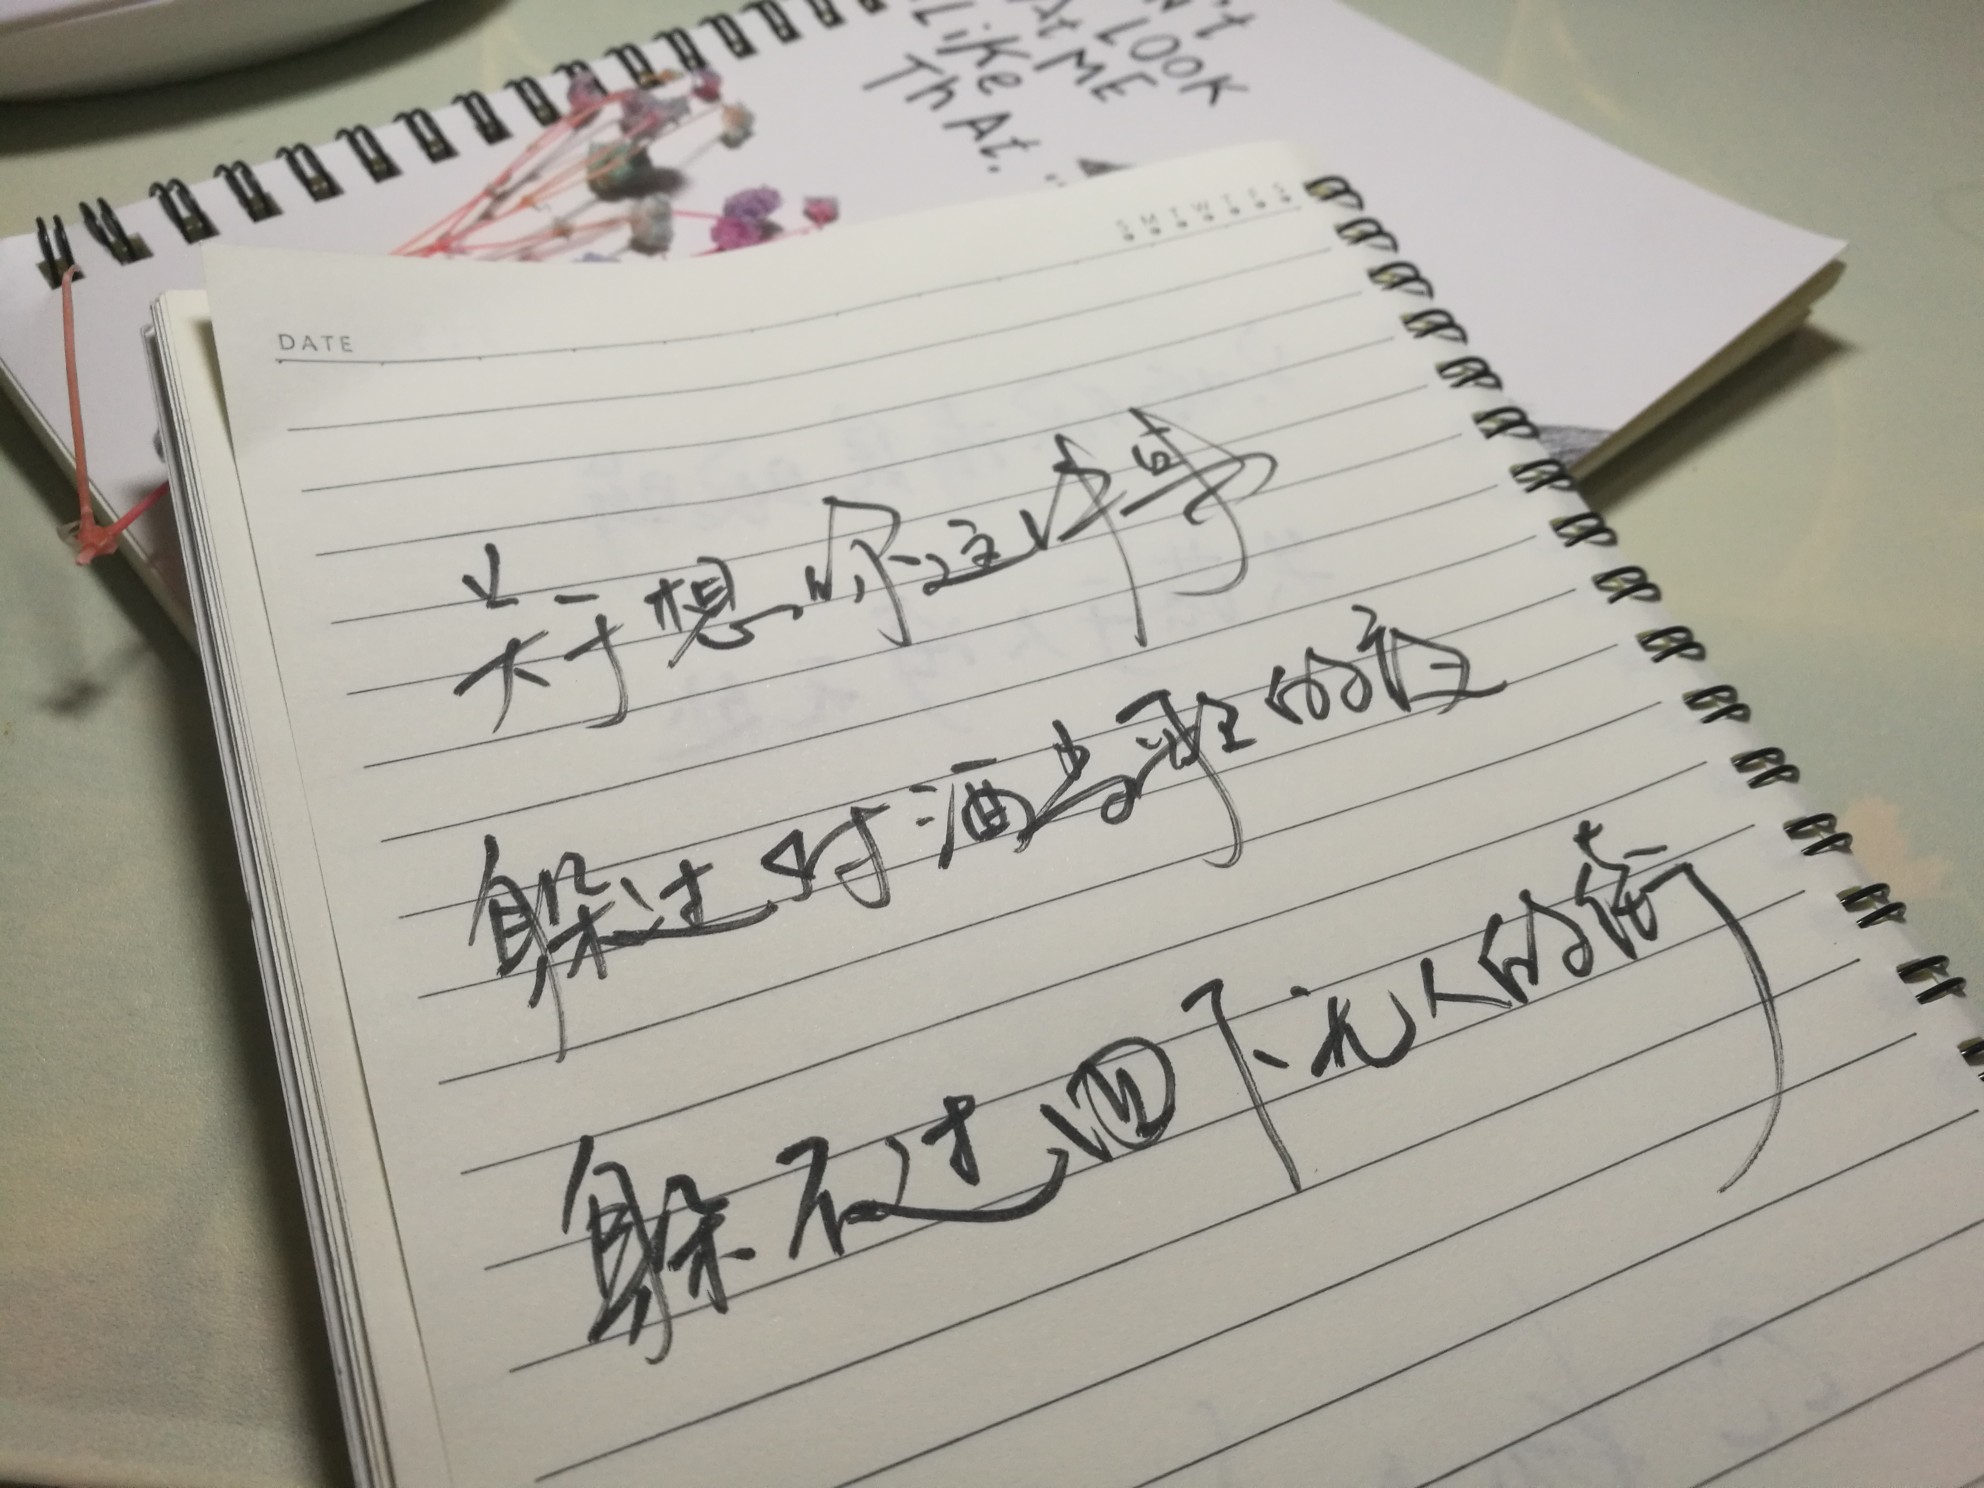 N't
LOOK
At ME
LiKe
ThAt.
S M T W T F S
DATE
关于想你这件事
躲过对酒当歌的夜
躲不过四下无人的街